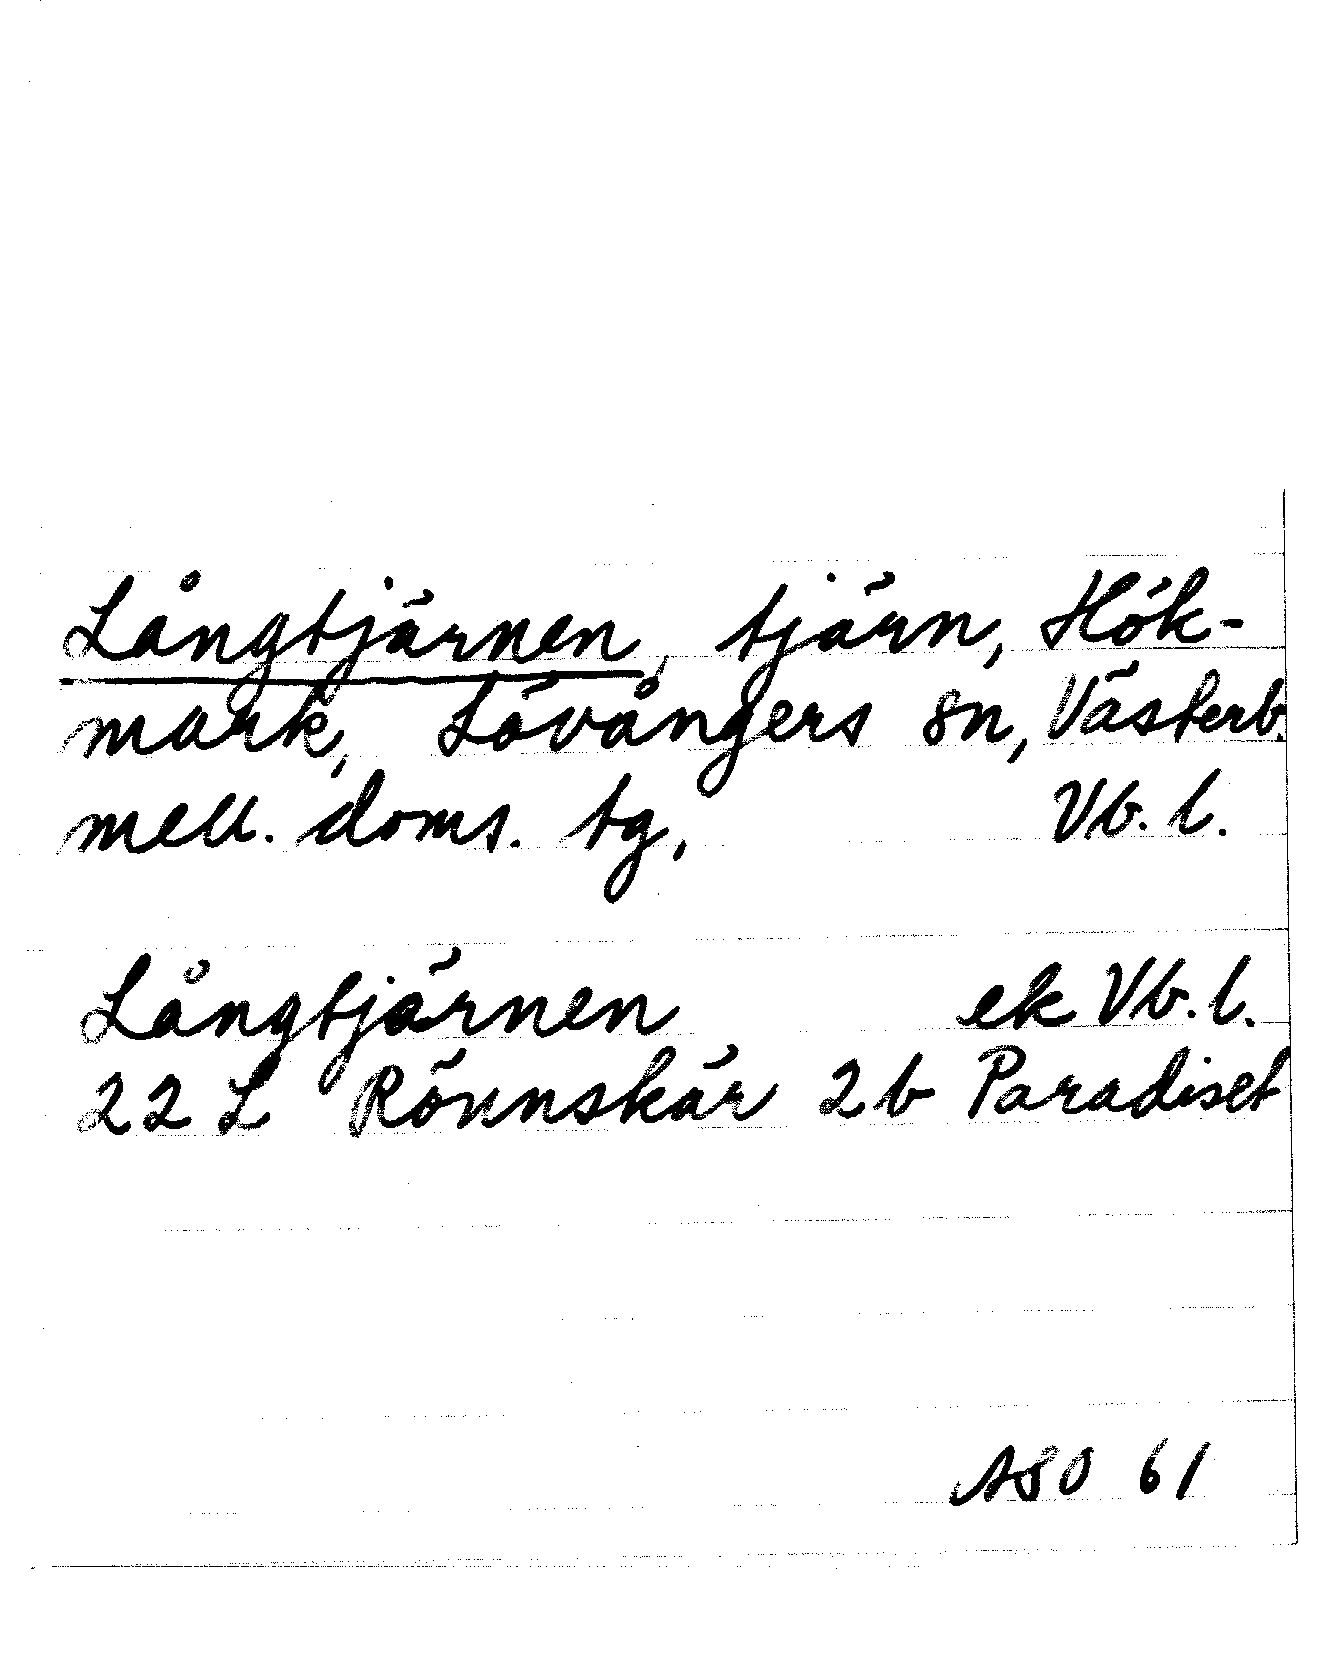 Långtjärnen, tjärn, Hök-
mark, Lövångers sn, Västerb.
mell. doms. tg, Vb. l.
Långtjärnen ek Vb. l.
22 L Rönnskär 2b Paradiset
ASO 61